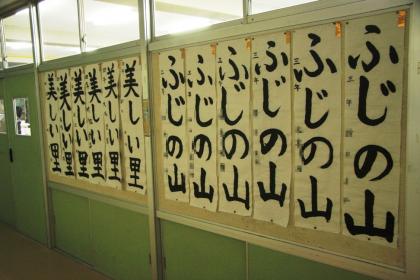 ふじの山
三年
ふじの山
三年
ふじの山
三年
ふじの山
三年
ふじの山
三年
ふじの山
美しい里
美しい里
美しい里
美しい里
美しい里
美しい里